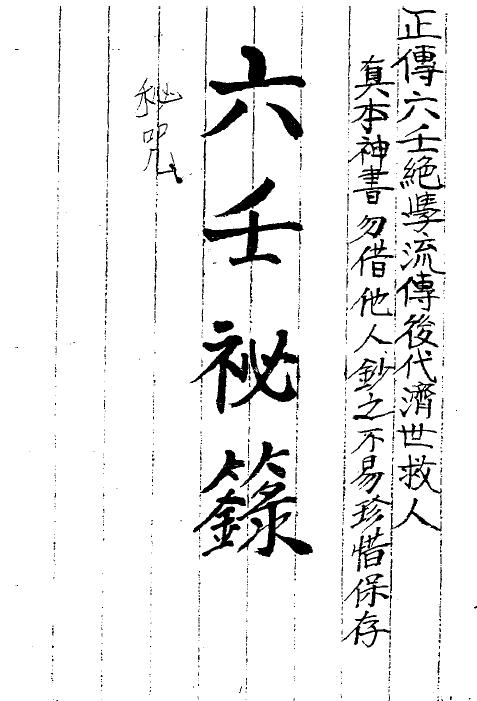 正傳六壬絕學流傳後代濟世救人
真本神書勿借他人鈔之不易珍惜保存
六壬祕籙
秘咒